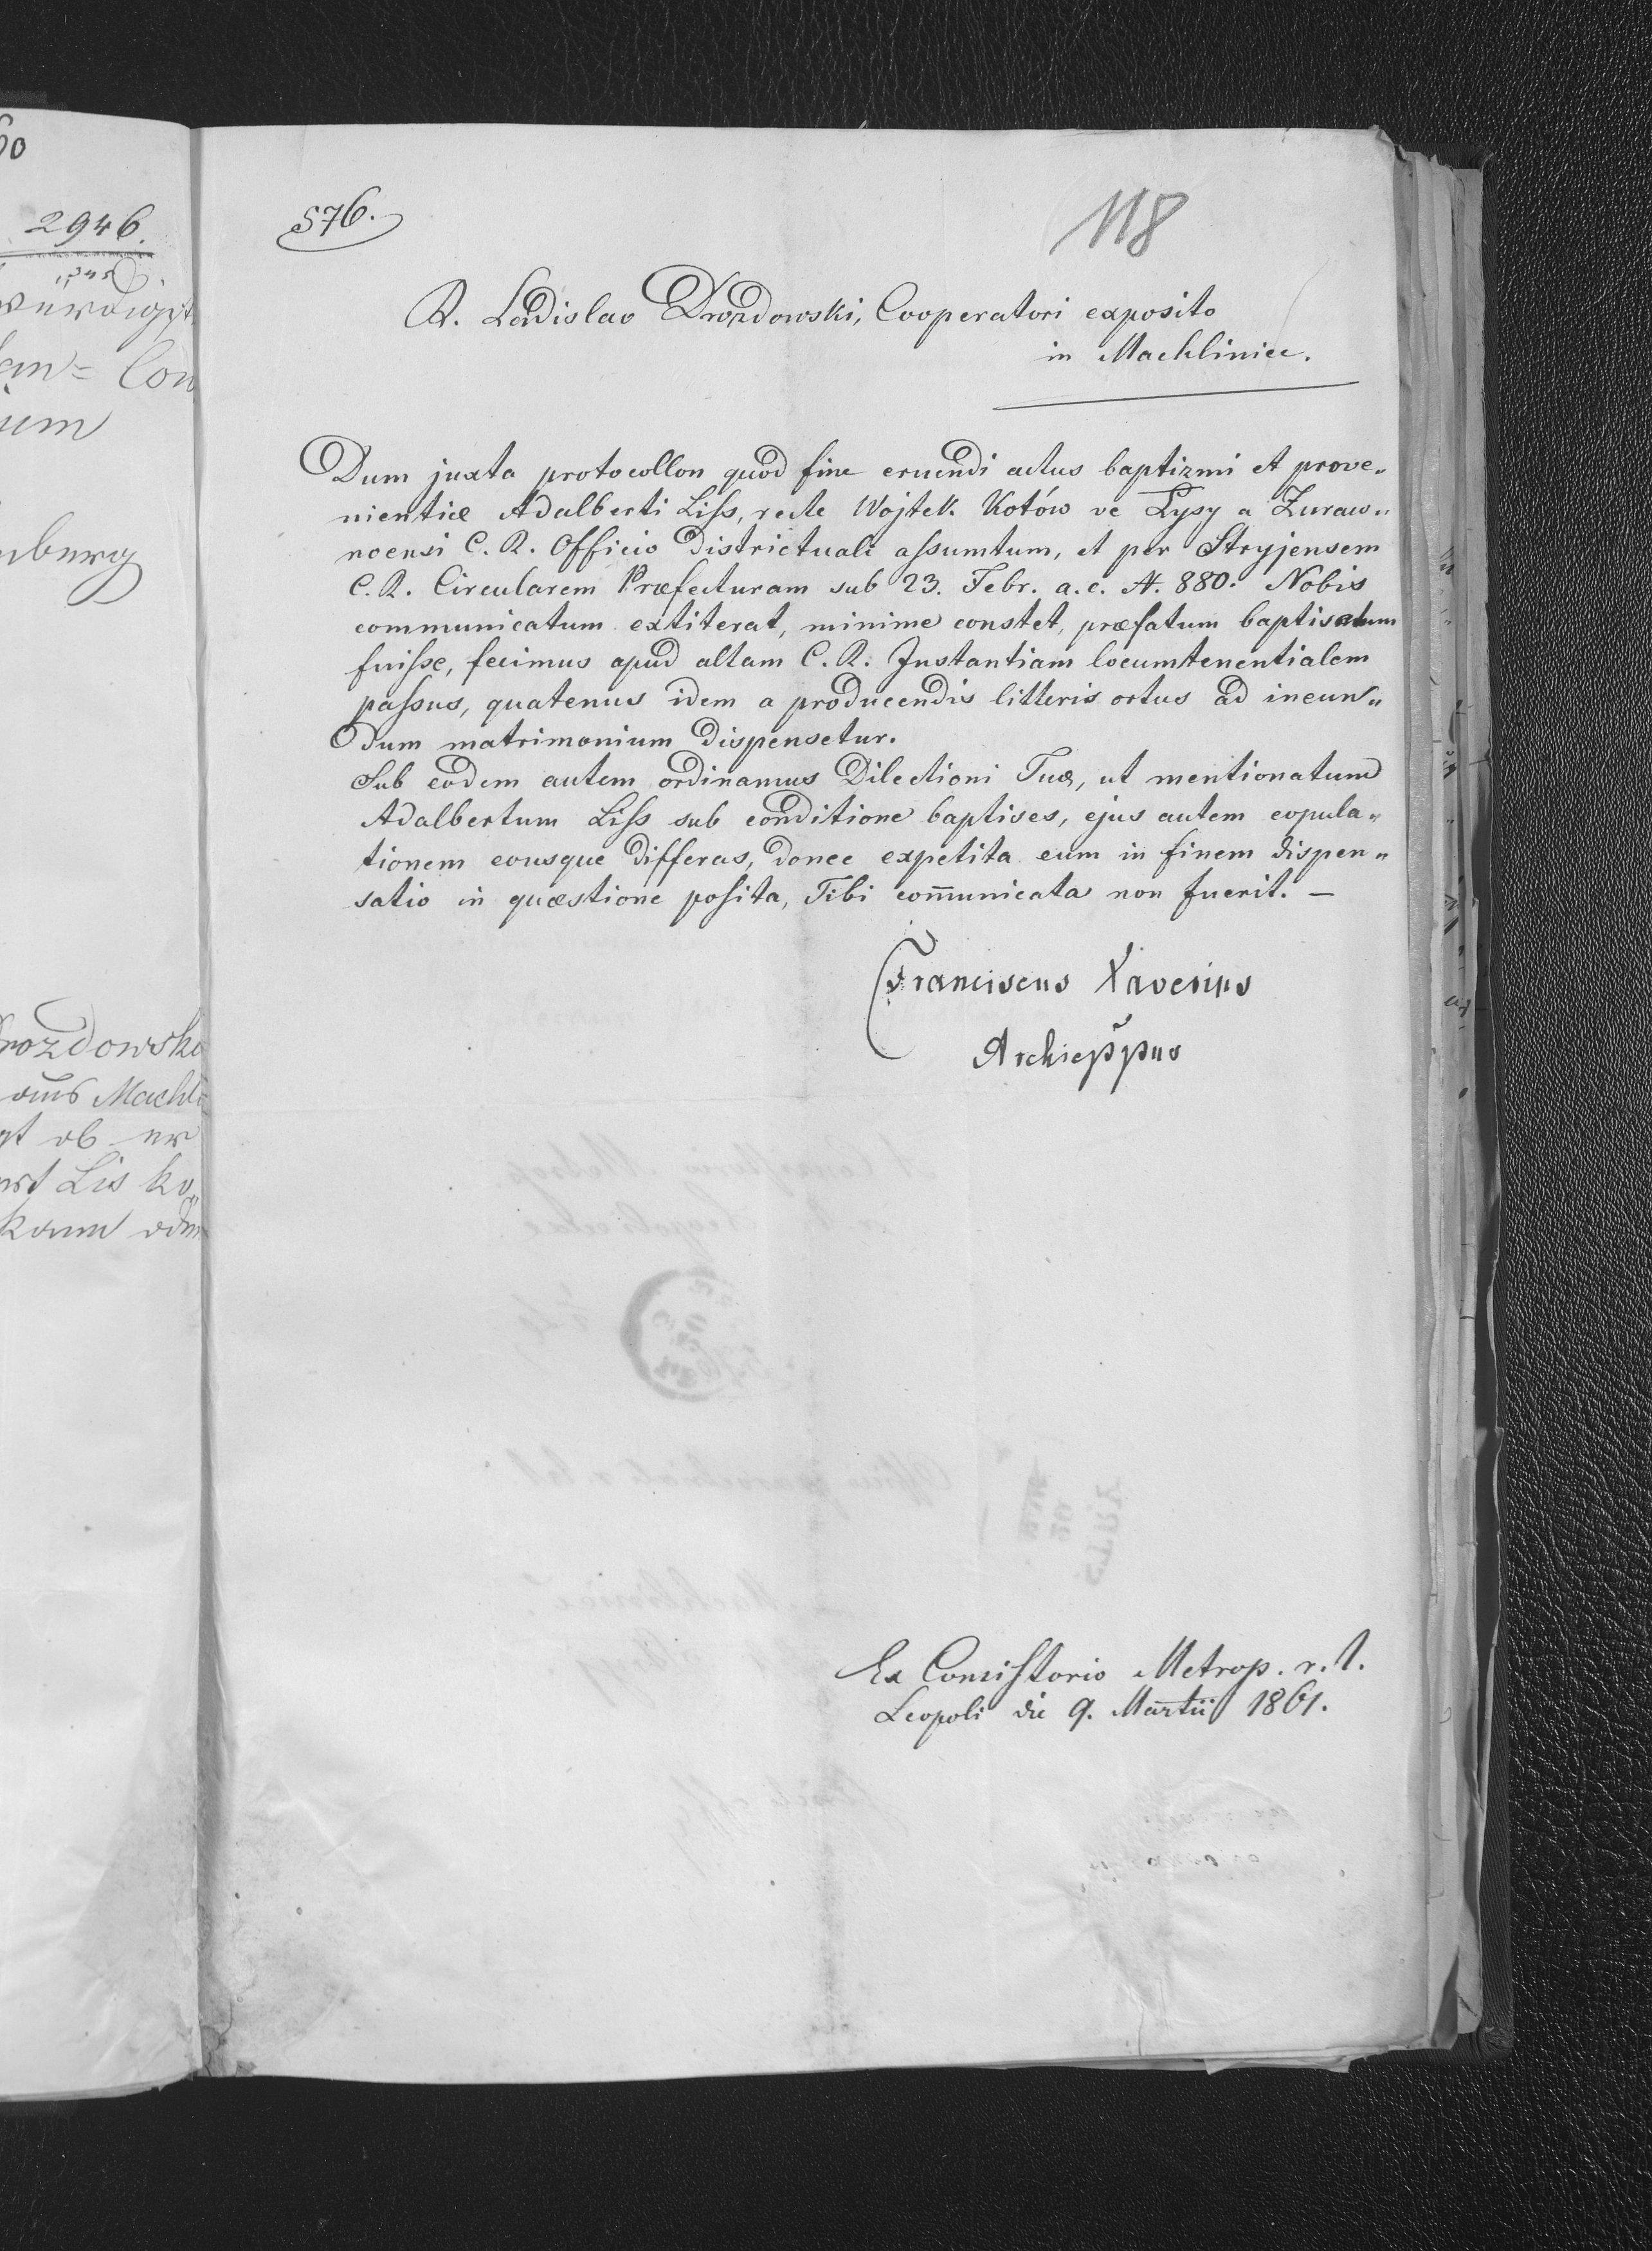 60
2946.
576.
118
R. Ladislao Drozdowski, Cooperatori exposito
in Machliniec.
Dum juxta protocollon quod fine eruendi actus baptizmi et prove„
nientiæ Adalberti Liſs, recte Wojtek Kotów vẽ Łysy a Zuraw„
noensi C. R. Officio districtuali aſsumtum, et per Stryjensem
C. R. Circularem Præfecturam sub 23. Febr. a. c. N. 880. Nobis
communicatum extiterat, minime constet, præfatum baptisatum
fuiſse, fecimus apud altam C. R. Instantiam locumtenentialem
paſsus, quatenus idem a producendis litteris ortus ad ineun„
dum matrimonium dispensetur.
Sub eodem autem ordinamus Dilectioni Tuæ, ut mentionatum
Adalbertum Liſs sub conditione baptises, ejus autem copula„
tionem eousque differas, donec expetita eum in finem dispen„
satio in quæstione poſita, Tibi com̄unicata non fuerit. —
Franciscus Xaverius
Archiep̃pus
rozdowski
aus Machli
gt ob er
ert Lis ko„
kann oder
Ex Consiſtorio Metrop. r. l.
Leopoli die 9. Martii 1861.